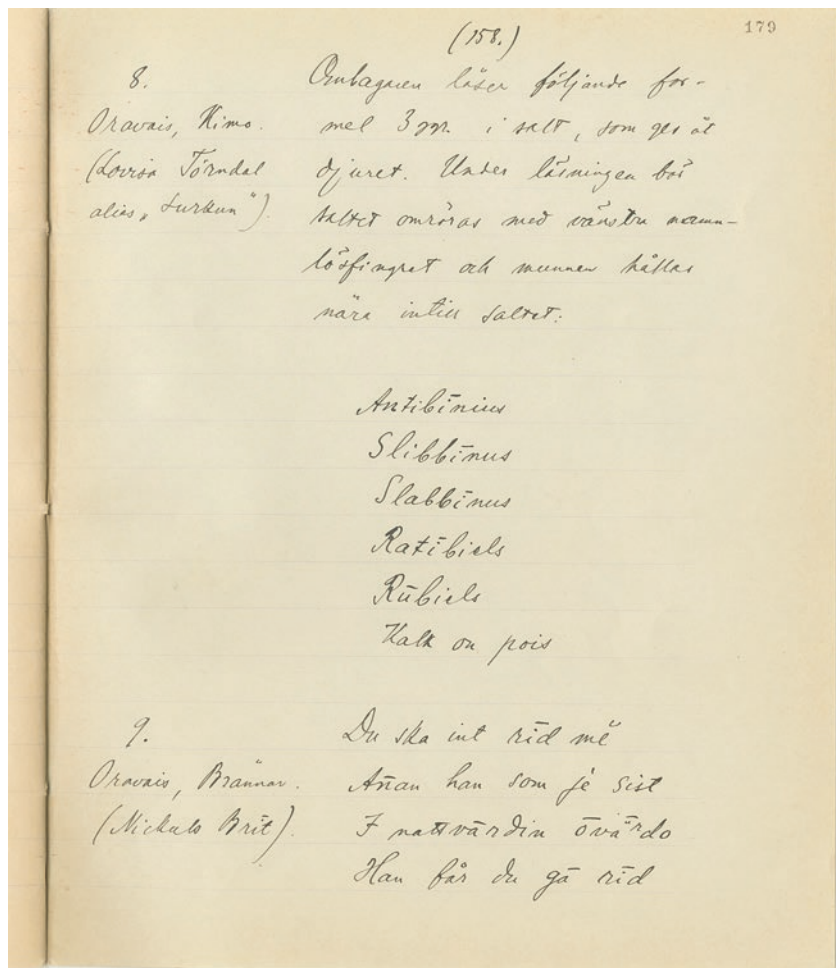 179
(158.)
8.
Oravais, Kimo.
(Lovisa Törndal
alias „Lurkun").
Ombagaren läser följande for-
mel 3 ggr. i salt, som ges åt
djuret. Under läsningen bör
saltet omröras med vänstra namn-
lösfingret och munnen hållas
nära intill saltet:
Antibīnius
Slibbīnus
Slabbīnus
Ratībiels
Rūbiels
Kalk on pois
9.
Oravais, Brännar.
(Nickuls Brīt).
Du ska int rīd mē
Añan han som jē sist
I nattvārdin ōvä̅rdo
Han får du gā rīd